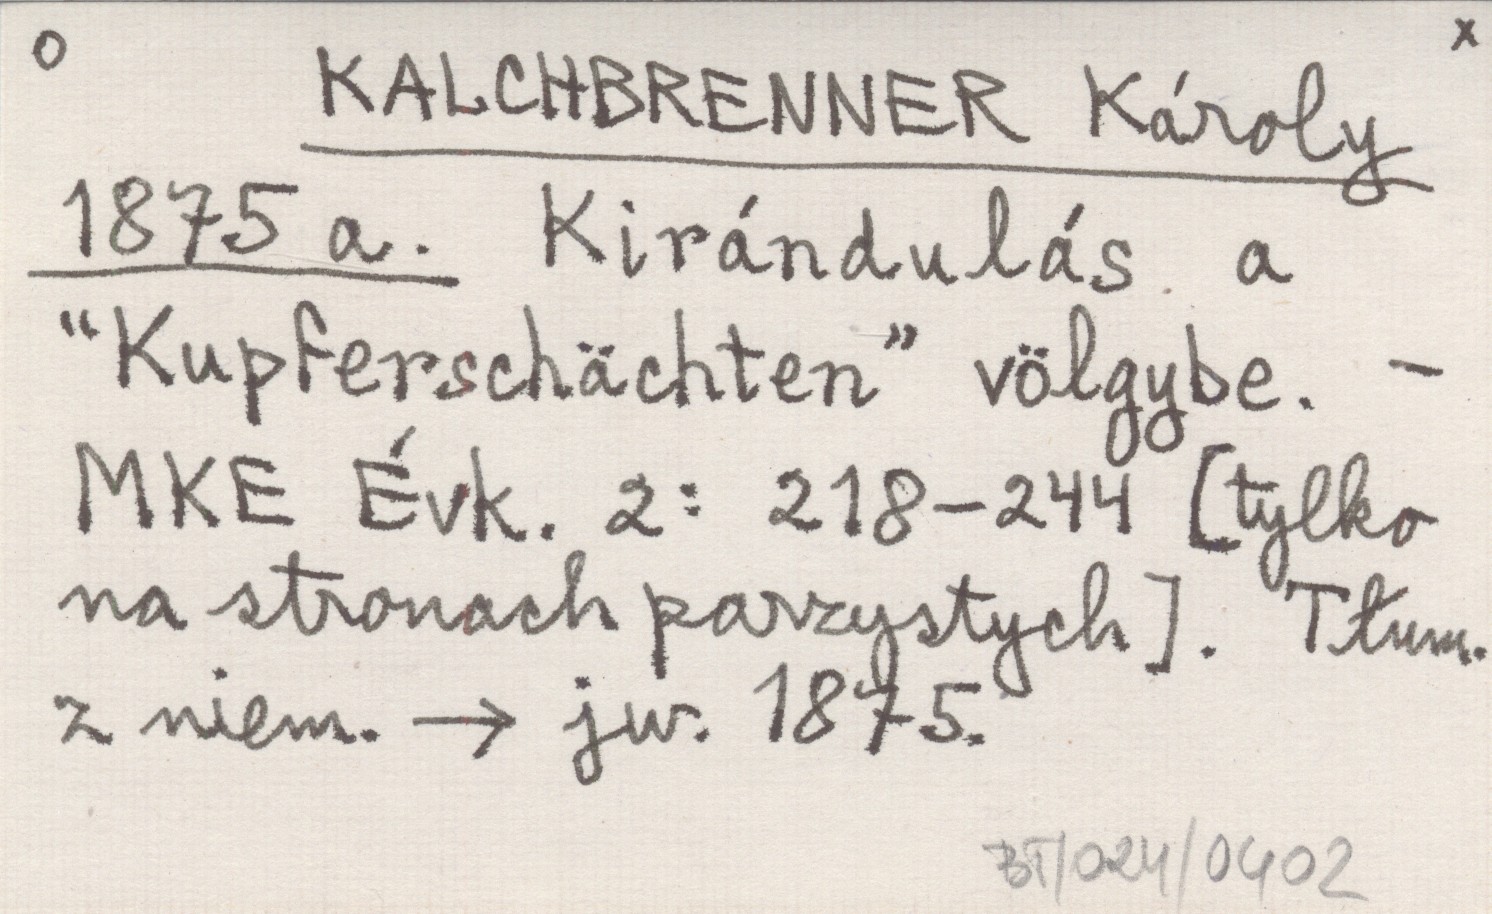 o x
KALCHBRENNER Károly
1875 a. Kirándulás a
“Kupferschächten” völgybe. –
MKE Évk. 2: 218–244 [tylko
na stronach parzystych]. Tłum.
z niem. → jw. 1875.
BT/024/0402